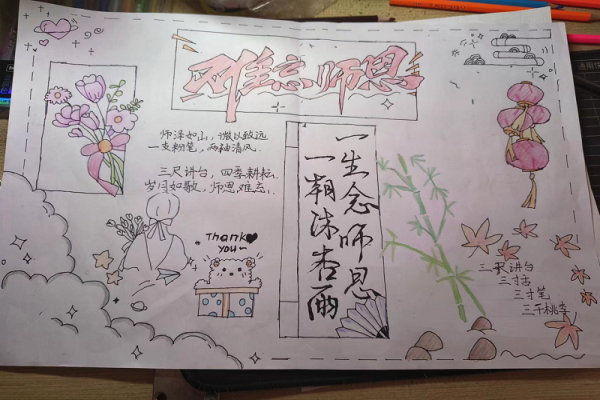 难忘师恩
师泽如山，微以致远
一支粉笔，两袖清风.
三尺讲台，四季耕耘
岁月如歌，师恩难忘.
Thank
you~
一生念师恩
一朝沐杏雨
三尺讲台
三寸舌
三寸笔
三千桃李